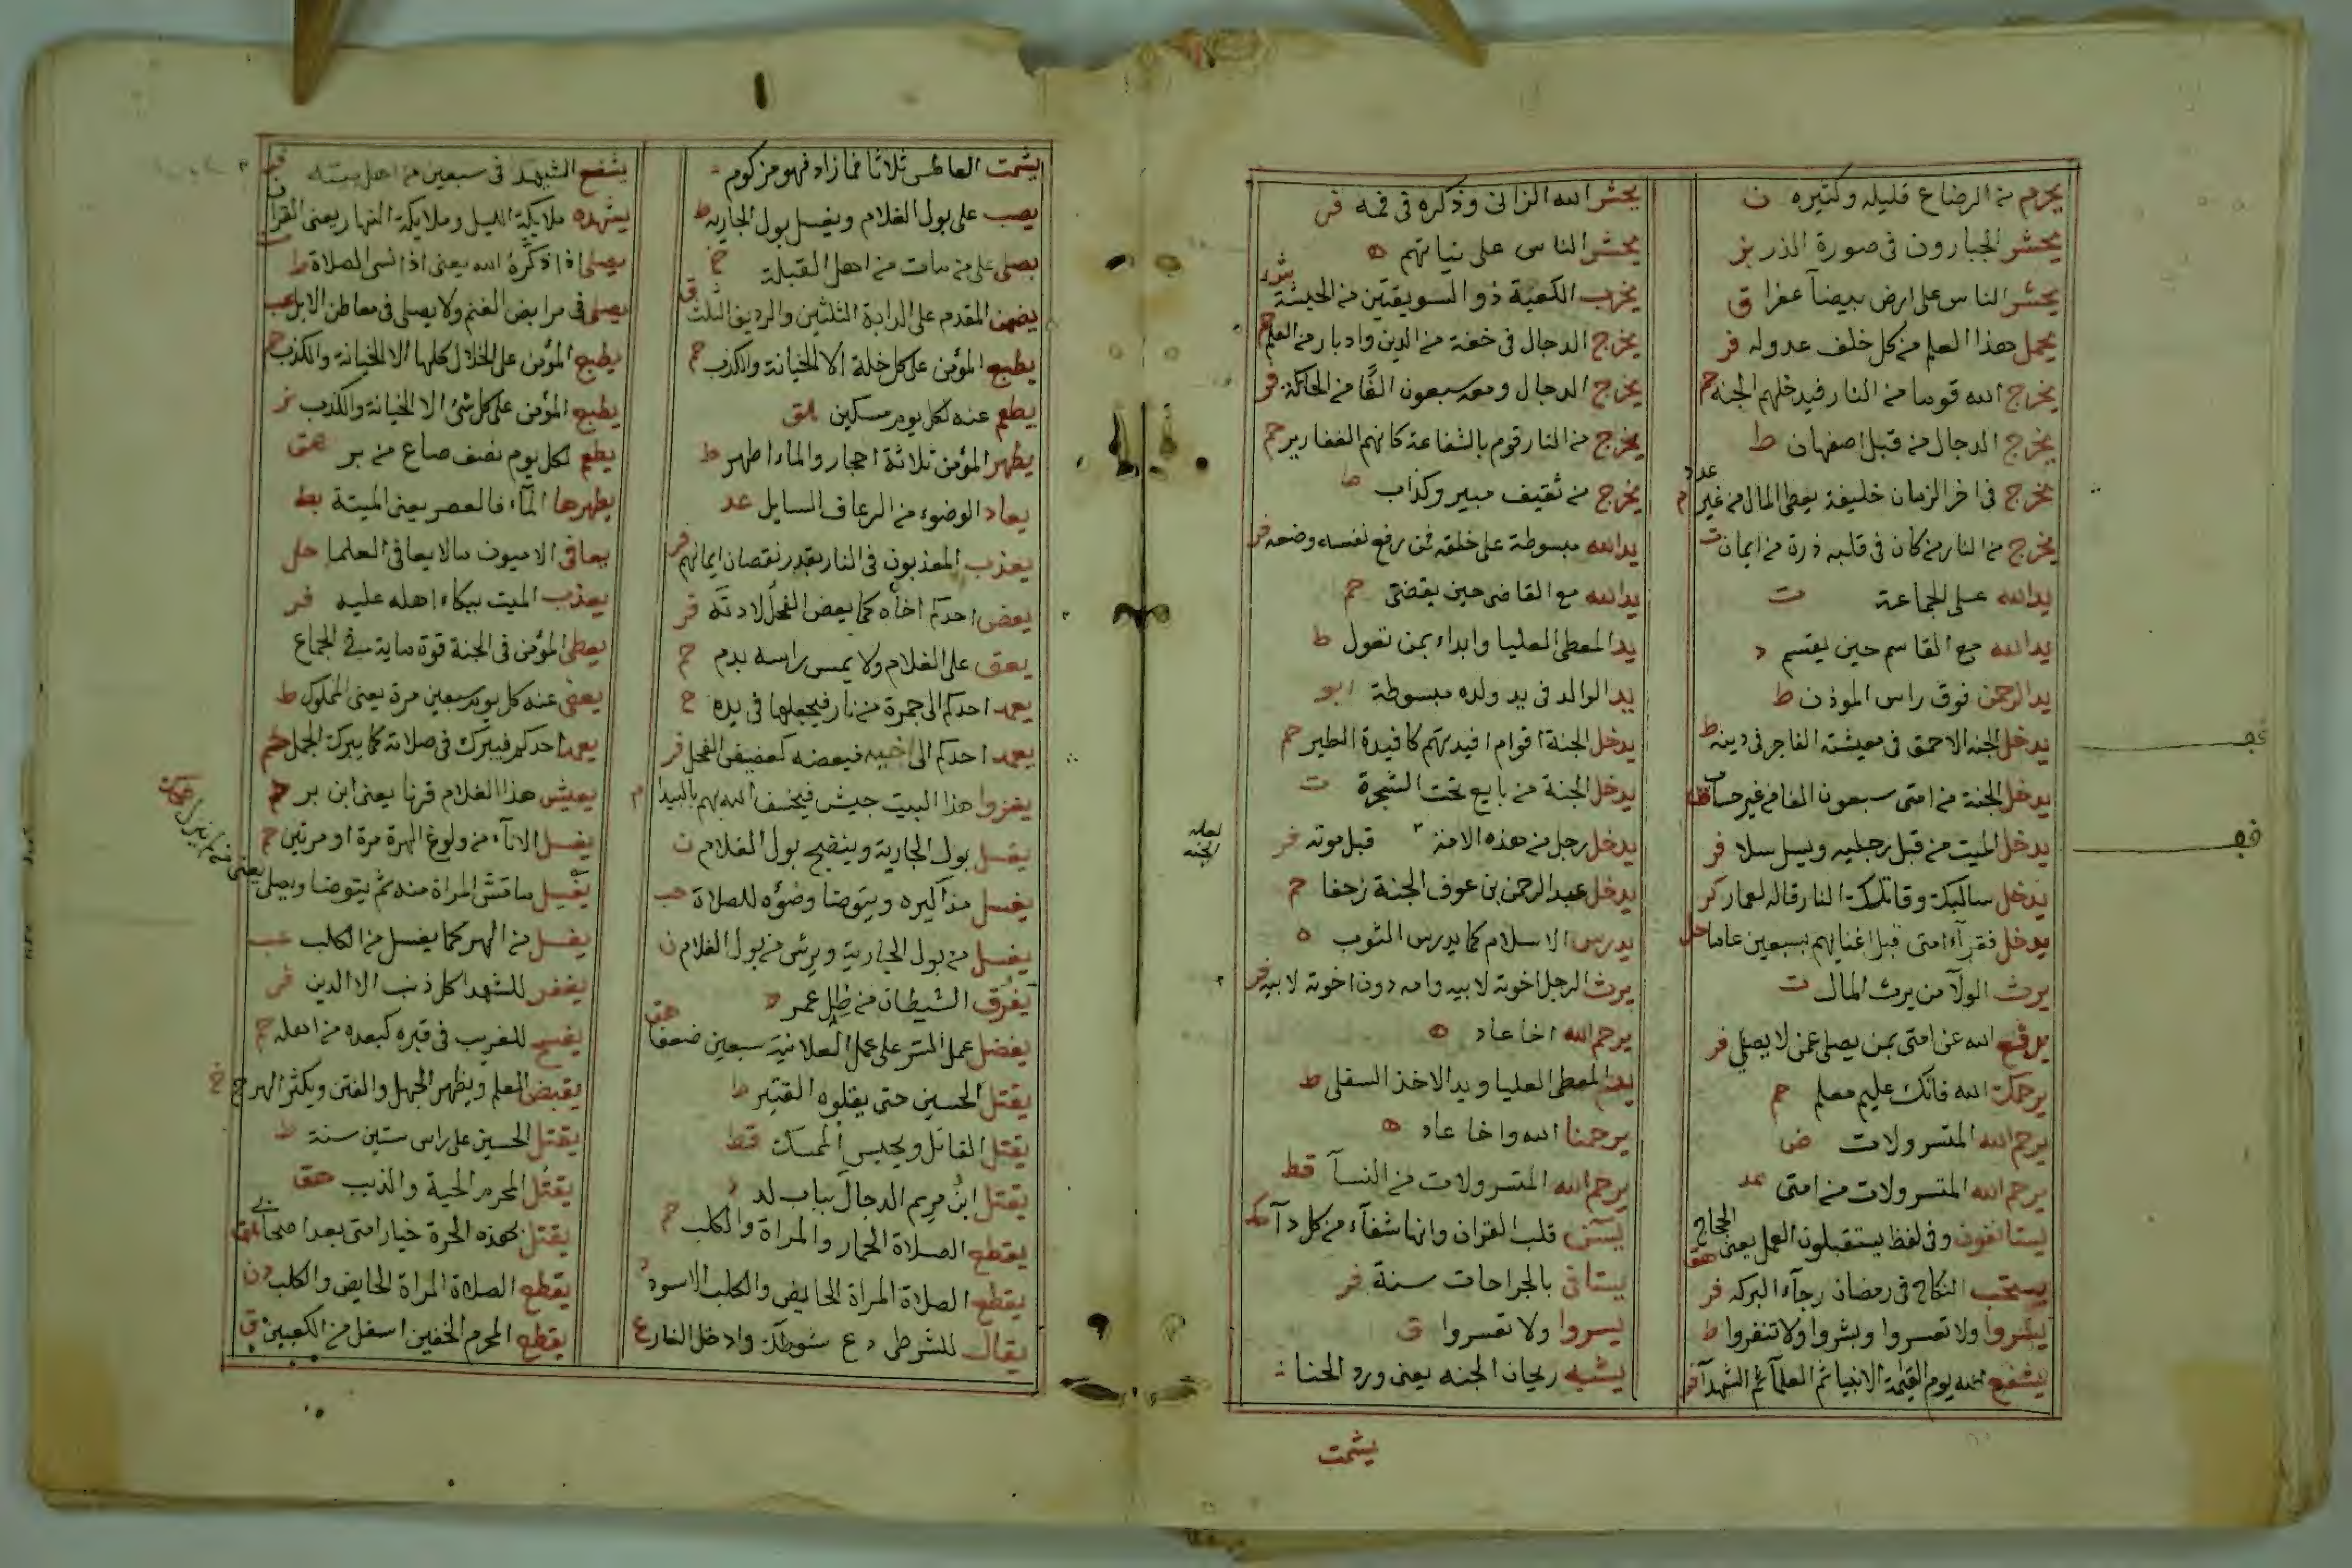 يحرم من الرضاع قليله وكثيره ن
يحشر الجبارون في صورة الذر بز
يحشر الناس على ارض بيضآ عفرا ق
يحمل هذا العلم من كل خلف عدوله فر
يخرج الله قوما من النار فيدخلهم الجنه حم
يخرج الدجال من قبل اصفهان ط
يخرج في اخر الزمان خليفة يعطى المال من غير عدد م
يخرج من النار من كان في قلبه ذرة من ايمان ت
يد الله على الجماعة ت
يد الله مع القاسم حين يقسم د
يد الرحمن فوق راس الموذن ط
يدخل الجنه الاحمق في معيشته الفاجر في دينه ط
يدخل الجنة من امتى سبعون الفا من غير حساب
يدخل الميت من قبل رجليه ويسل سلا فر
يدخل سالبك وقاتلك النار قاله لعمار كر
يدخل فقرآء امتى قبل اغنيايهم بسبعين عاما حل
يرث الولآ من يرث المال ت
يرفع الله عن امتى بمن يصلى عمن لا يصلي فر
يرحمك الله فانك عليم معلم حم
يرحم الله المتسرولات ض
يرحم الله المتسرولات من امتى عد
يستانفون وفى لفظ يستقبلون العمل يعنى الحجاج هق
يستحب النكاح في رمضان رجآء البركه فر
يسروا ولا تعسروا وبشروا ولا تنفروا ط
يشفع الله يوم القيمة الانبيا ثم العلمآ ثم الشهدآ فر
يحشر الله الزانى وذكره في فمه فر
يحشر الناس على نياتهم ه
يخرب الكعبة ذو السويقتين من الحبشة
يخرج الدجال في خفة من الدين وادبار من العلم حم
يخرج الدجال ومعه سبعون الفًا من الحاكة فر
يخرج من النار قوم بالشفاعة كانهم الثغارير حم
يخرج من ثقيف مبير وكذاب
يد الله مبسوطة على خلقه فمن رفع نفسه وضعه فر
يد الله مع القاضى حين يقضى حم
يد المعطى العليا وابداء بمن تعول ط
يد الوالد في يد ولده مبسوطة ابو
يدخل الجنة اقوام افيدتهم كافيدة الطير حم
يدخل الجنة من بايع تحت الشجرة ت
يدخل رجل من هذه الامة قبل موته فر
لعله الجنه
يدخل عبد الرحمن بن عوف الجنة زحفا حم
يدرس الاسلام كما يدرس الثوب ه
يرث الرجل اخوته لابيه وامه دون اخوته لابيه فر
يرحم الله اخا عاد ه
يد المعطى العليا ويد الاخذ السفلى ط
يرحمنا الله واخا عاد ه
يرحم الله المتسرولات من النسآ قط
يس قلب القران وانها شفآء من كل دآ
يستانى بالجراحات سنة فر
يسروا ولا تعسروا ق
يشبه ريحان الجنه يعنى ورد الحنا
يشمت
يشمت العاطس ثلاثا فما زاد فهو مزكوم
يصب على بول الغلام ويغسل بول الجاريه ط
يصلى على من مات من اهل القبلة
يضمن المقدم على الدابة الثلثين والرديف الثلث
يطبع المؤمن على كل خلة الا الخيانة والكذب حم
يطعم عنه لكل يوم مسكين هق
يطهر المؤمن ثلاثة احجار والماء اطهر ط
يعاد الوضوء من الرعاف السايل عد
يعذب المعذبون في النار بقدر نقصان ايمانهم فر
يعض احدكم اخاه كما يعض الفحل لا دية فر
يعق على الغلام ولا يمس راسه بدم حم
يعمد احدكم الى جمرة من نار فيجعلها في يده
يعمد احدكم الى اخيه فيعضه كعضيض الفحل فر
يغزوا هذا البيت جيش فيخسف الله بهم بالبيدا م
يغسل بول الجارية وينضح بول الغلام ن
يغسل مذاكيره ويتوضا وضؤه للصلاة حب
يغسل من بول الجارية ويرش من بول الغلام ن
يفرق الشيطان من ظل عمر
يفضل عمل السر على عمل العلانية سبعين ضعفا هق
يقتل الحسين حتى يعلوه القتير ط
يقتل القاتل ويحبس الممسك قط
يقتل ابن مريم الدجال بباب لد
يقطع الصلاة الحمار والمراة والكلب حم
يقطع الصلاة المراة الحايض والكلب الاسود
يقال للشرطى دع سوطك وادخل النار ع
يشفع الشهيد في سبعين من اهل بيته
يشهده ملايكة الليل وملايكة النهار يعنى القران
يصلى اذا ذكره الله يعنى اذا نسى الصلاة ط
يصلى في مرابض الغنم ولا يصلى في معاطن الابل
يطبع المؤمن على الخلال كلها الا الخيانة والكذب حم
يطبع المؤمن على كل شئ الا الخيانة والكذب بز
يطعم لكل يوم نصف صاع من بر هق
يطهرها المآء فالعصر يعنى الميتة
يعافى الاميون مالا يعافى العلما حل
يعذب الميت ببكاء اهله عليه فر
يعطى المؤمن في الجنة قوة ماية في الجماع
يعفى عنه كل يوم سبعين مرة يعنى المملوك ط
يعمد احدكم فيبرك في صلاته كما يبرك الجمل
يعيش هذا الغلام قرنا يعنى ابن بسر حم
يغسل الانآء من ولوغ الهرة مرة او مرتين
يغسل ما مس المراة منه ثم يتوضا ويصلى
يغسل من الهر كما يغسل من الكلب
يغفر للشهدا كل ذنب الا الدين فر
يفسح للغريب في قبره كبعده من اهله
يقبض العلم ويظهر الجهل والفتن ويكثر الهرج خ
يقتل الحسين على راس ستين سنة ط
يقتل المحرم الحية والذيب هق
يقتل بهذه الحرة خيار امتى بعد اصحابى
يقطع الصلاة المراة الحايض والكلب
يقطع المحرم الخفين اسفل من الكعبين